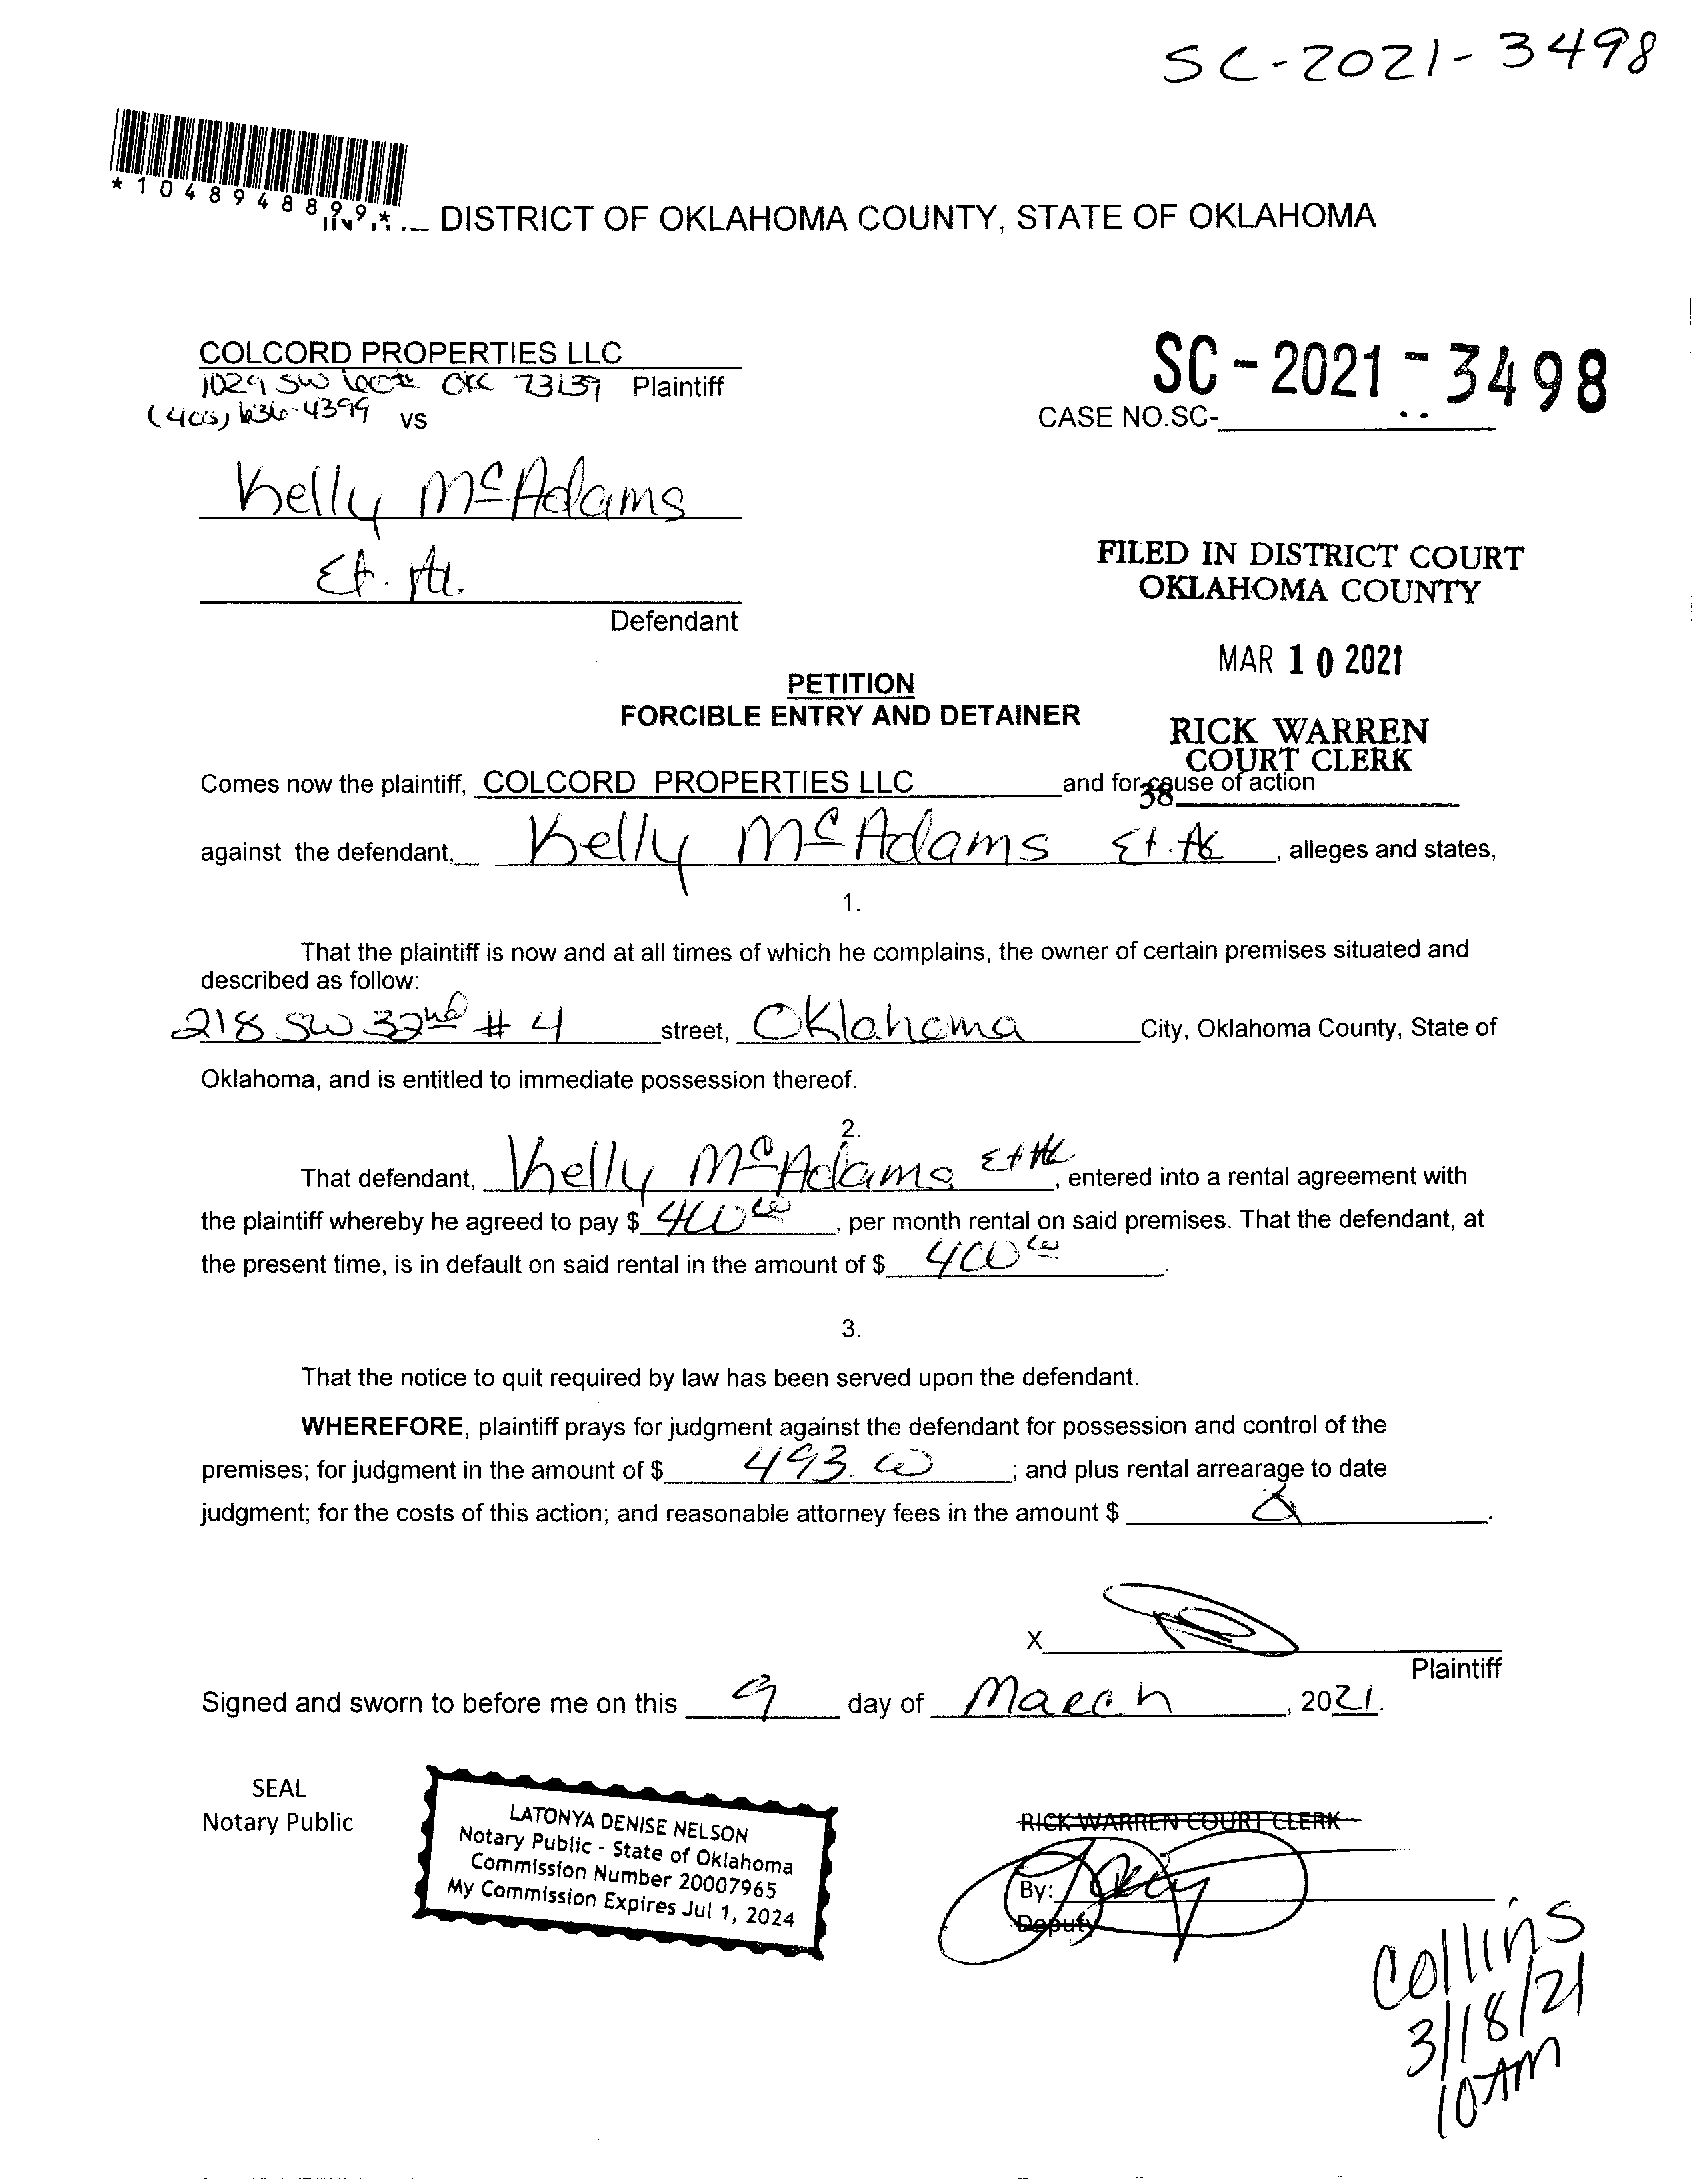 SC-2021-3498
*1048948899*
DISTRICT OF OKLAHOMA COUNTY, STATE OF OKLAHOMA
COLCORD PROPERTIES LLC
1029 SW OKC 73139 Plaintiff
(405) 636-4399 vs
SC-2021-3498
CASE NO.SC-
Kelly McAdams
Et. Al.
Defendant
FILED IN DISTRICT COURT
OKLAHOMA COUNTY
MAR 10 2021
RICK WARREN
COURT CLERK
38
PETITION
FORCIBLE ENTRY AND DETAINER
Comes now the plaintiff, COLCORD PROPERTIES LLC and for cause of action
against the defendant, Kelly McAdams Et. Al, alleges and states,
1.
That the plaintiff is now and at all times of which he complains, the owner of certain premises situated and
described as follow:
218 SW 32nd # 4 street, Oklahoma City, Oklahoma County, State of
Oklahoma, and is entitled to immediate possession thereof.
2.
That defendant, Kelly McAdams Et Al, entered into a rental agreement with
the plaintiff whereby he agreed to pay $ 400 00, per month rental on said premises. That the defendant, at
the present time, is in default on said rental in the amount of $ 400 00.
3.
That the notice to quit required by law has been served upon the defendant.
WHEREFORE, plaintiff prays for judgment against the defendant for possession and control of the
premises; for judgment in the amount of $ 493.00; and plus rental arrearage to date
judgment; for the costs of this action; and reasonable attorney fees in the amount $
X
Plaintiff
Signed and sworn to before me on this 9 day of March, 2021.
SEAL
Notary Public
LATONYA DENISE NELSON
Notary Public - State of Oklahoma
Commission Number 20007965
My Commission Expires Jul 1, 2024
RICK WARREN COURT CLERK
By:
Deputy
Collins
3/18/21
10 AM